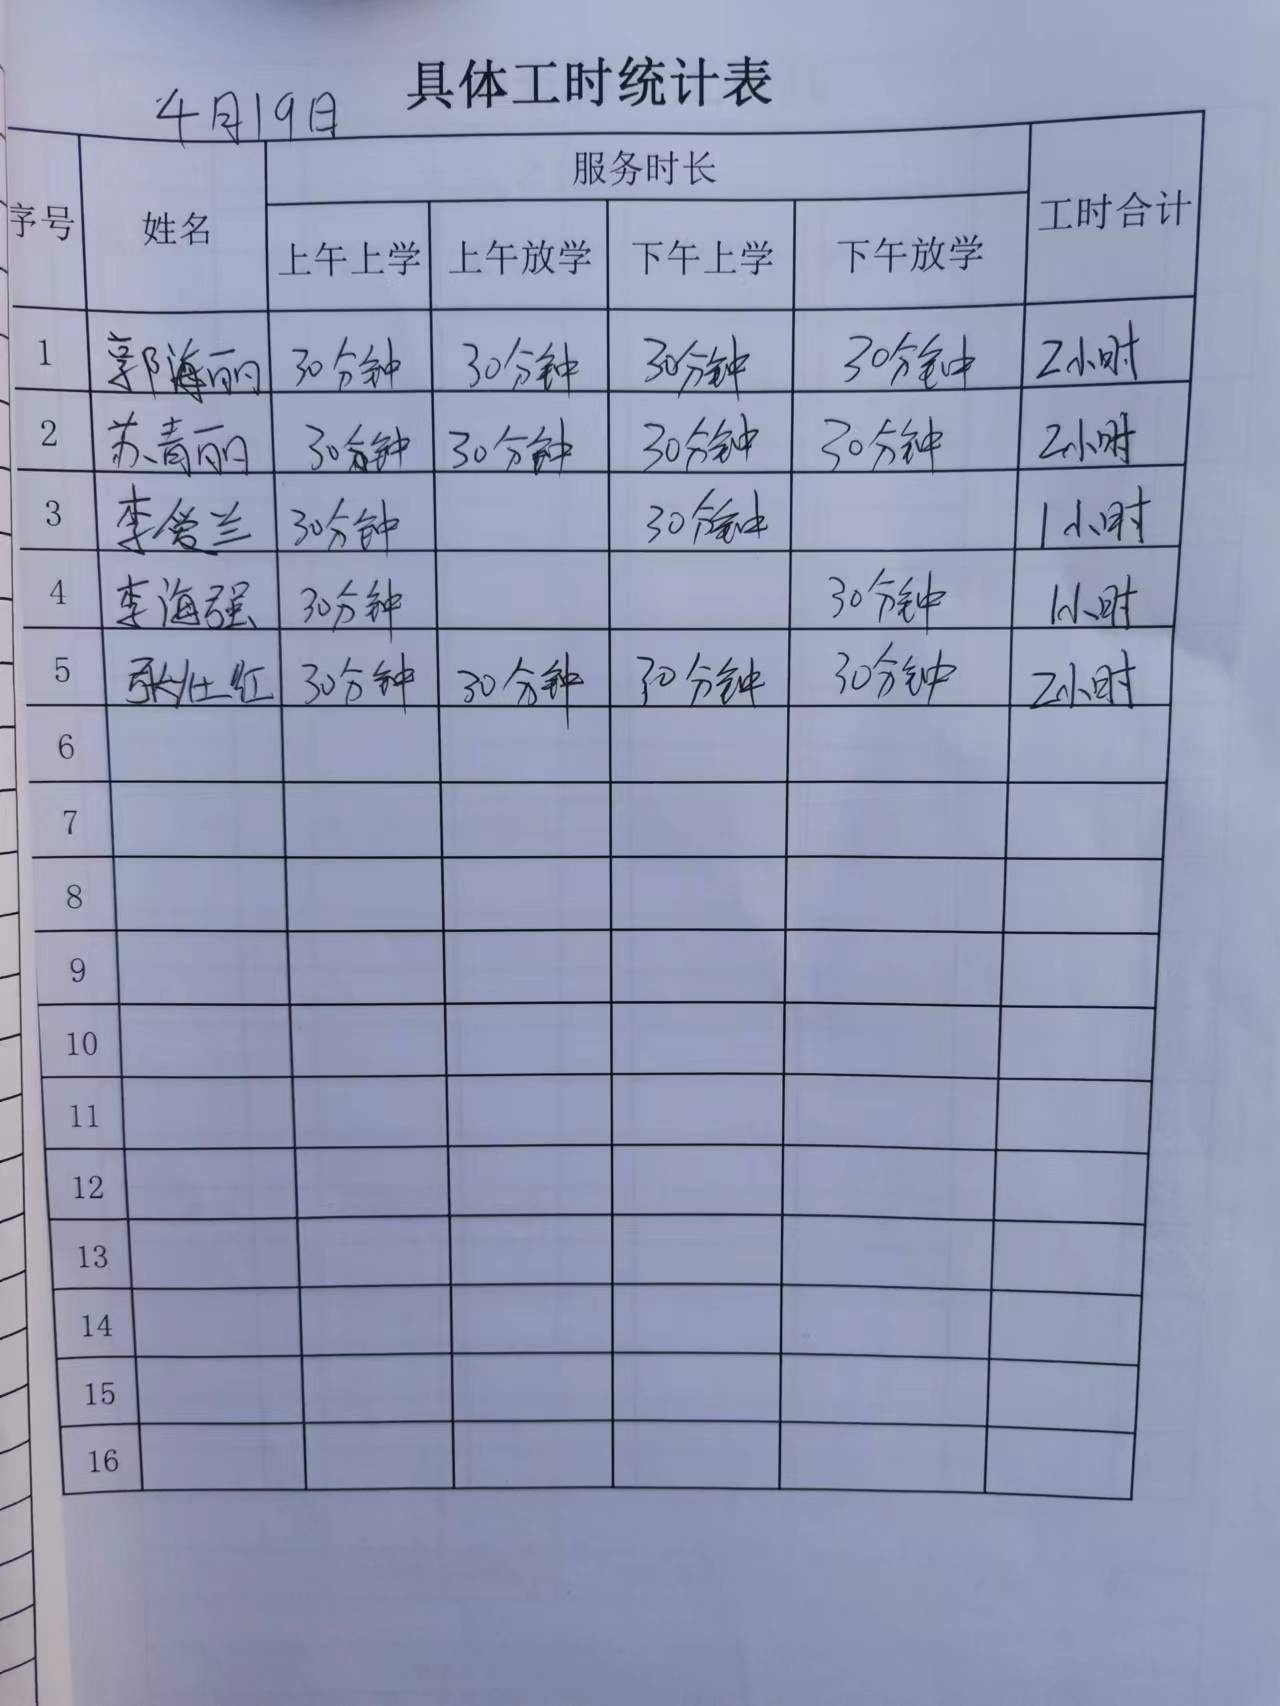 具体工时统计表
4月19日
序号 姓名 服务时长 工时合计
上午上学 上午放学 下午上学 下午放学
1 郭海丽 30分钟 30分钟 30分钟 30分钟 2小时
2 苏青丽 30分钟 30分钟 30分钟 30分钟 2小时
3 李爱兰 30分钟 30分钟 1小时
4 李海强 30分钟 30分钟 1小时
5 张仕红 30分钟 30分钟 30分钟 30分钟 2小时
6
7
8
9
10
11
12
13
14
15
16